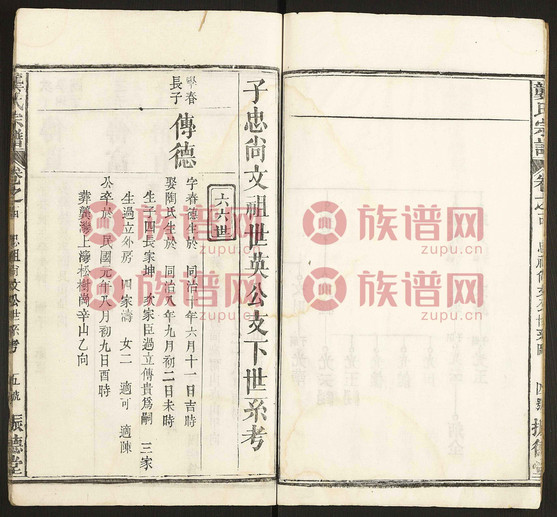 龔氏宗譜
子忠尚文祖世英公支下世系考
六六世
學春
長子
傳德
字春德生於 同治十年六月十一日吉時
娶陶氏生於 同治八年九月初二日未時
生子四長家坤 次家臣過立傳貴爲嗣 三家
生過立外房 四家濤 女二 適可 適陳
公卒於 民國元年八月初九日酉時
葬龔灣上灣松樹崗辛山乙向
龔氏宗譜
卷之
忠祖尚文公世系考
五號
振德堂
族谱网
zupu.cn
族谱网
zupu.cn
族谱网
zupu.cn
族谱网
zupu.cn